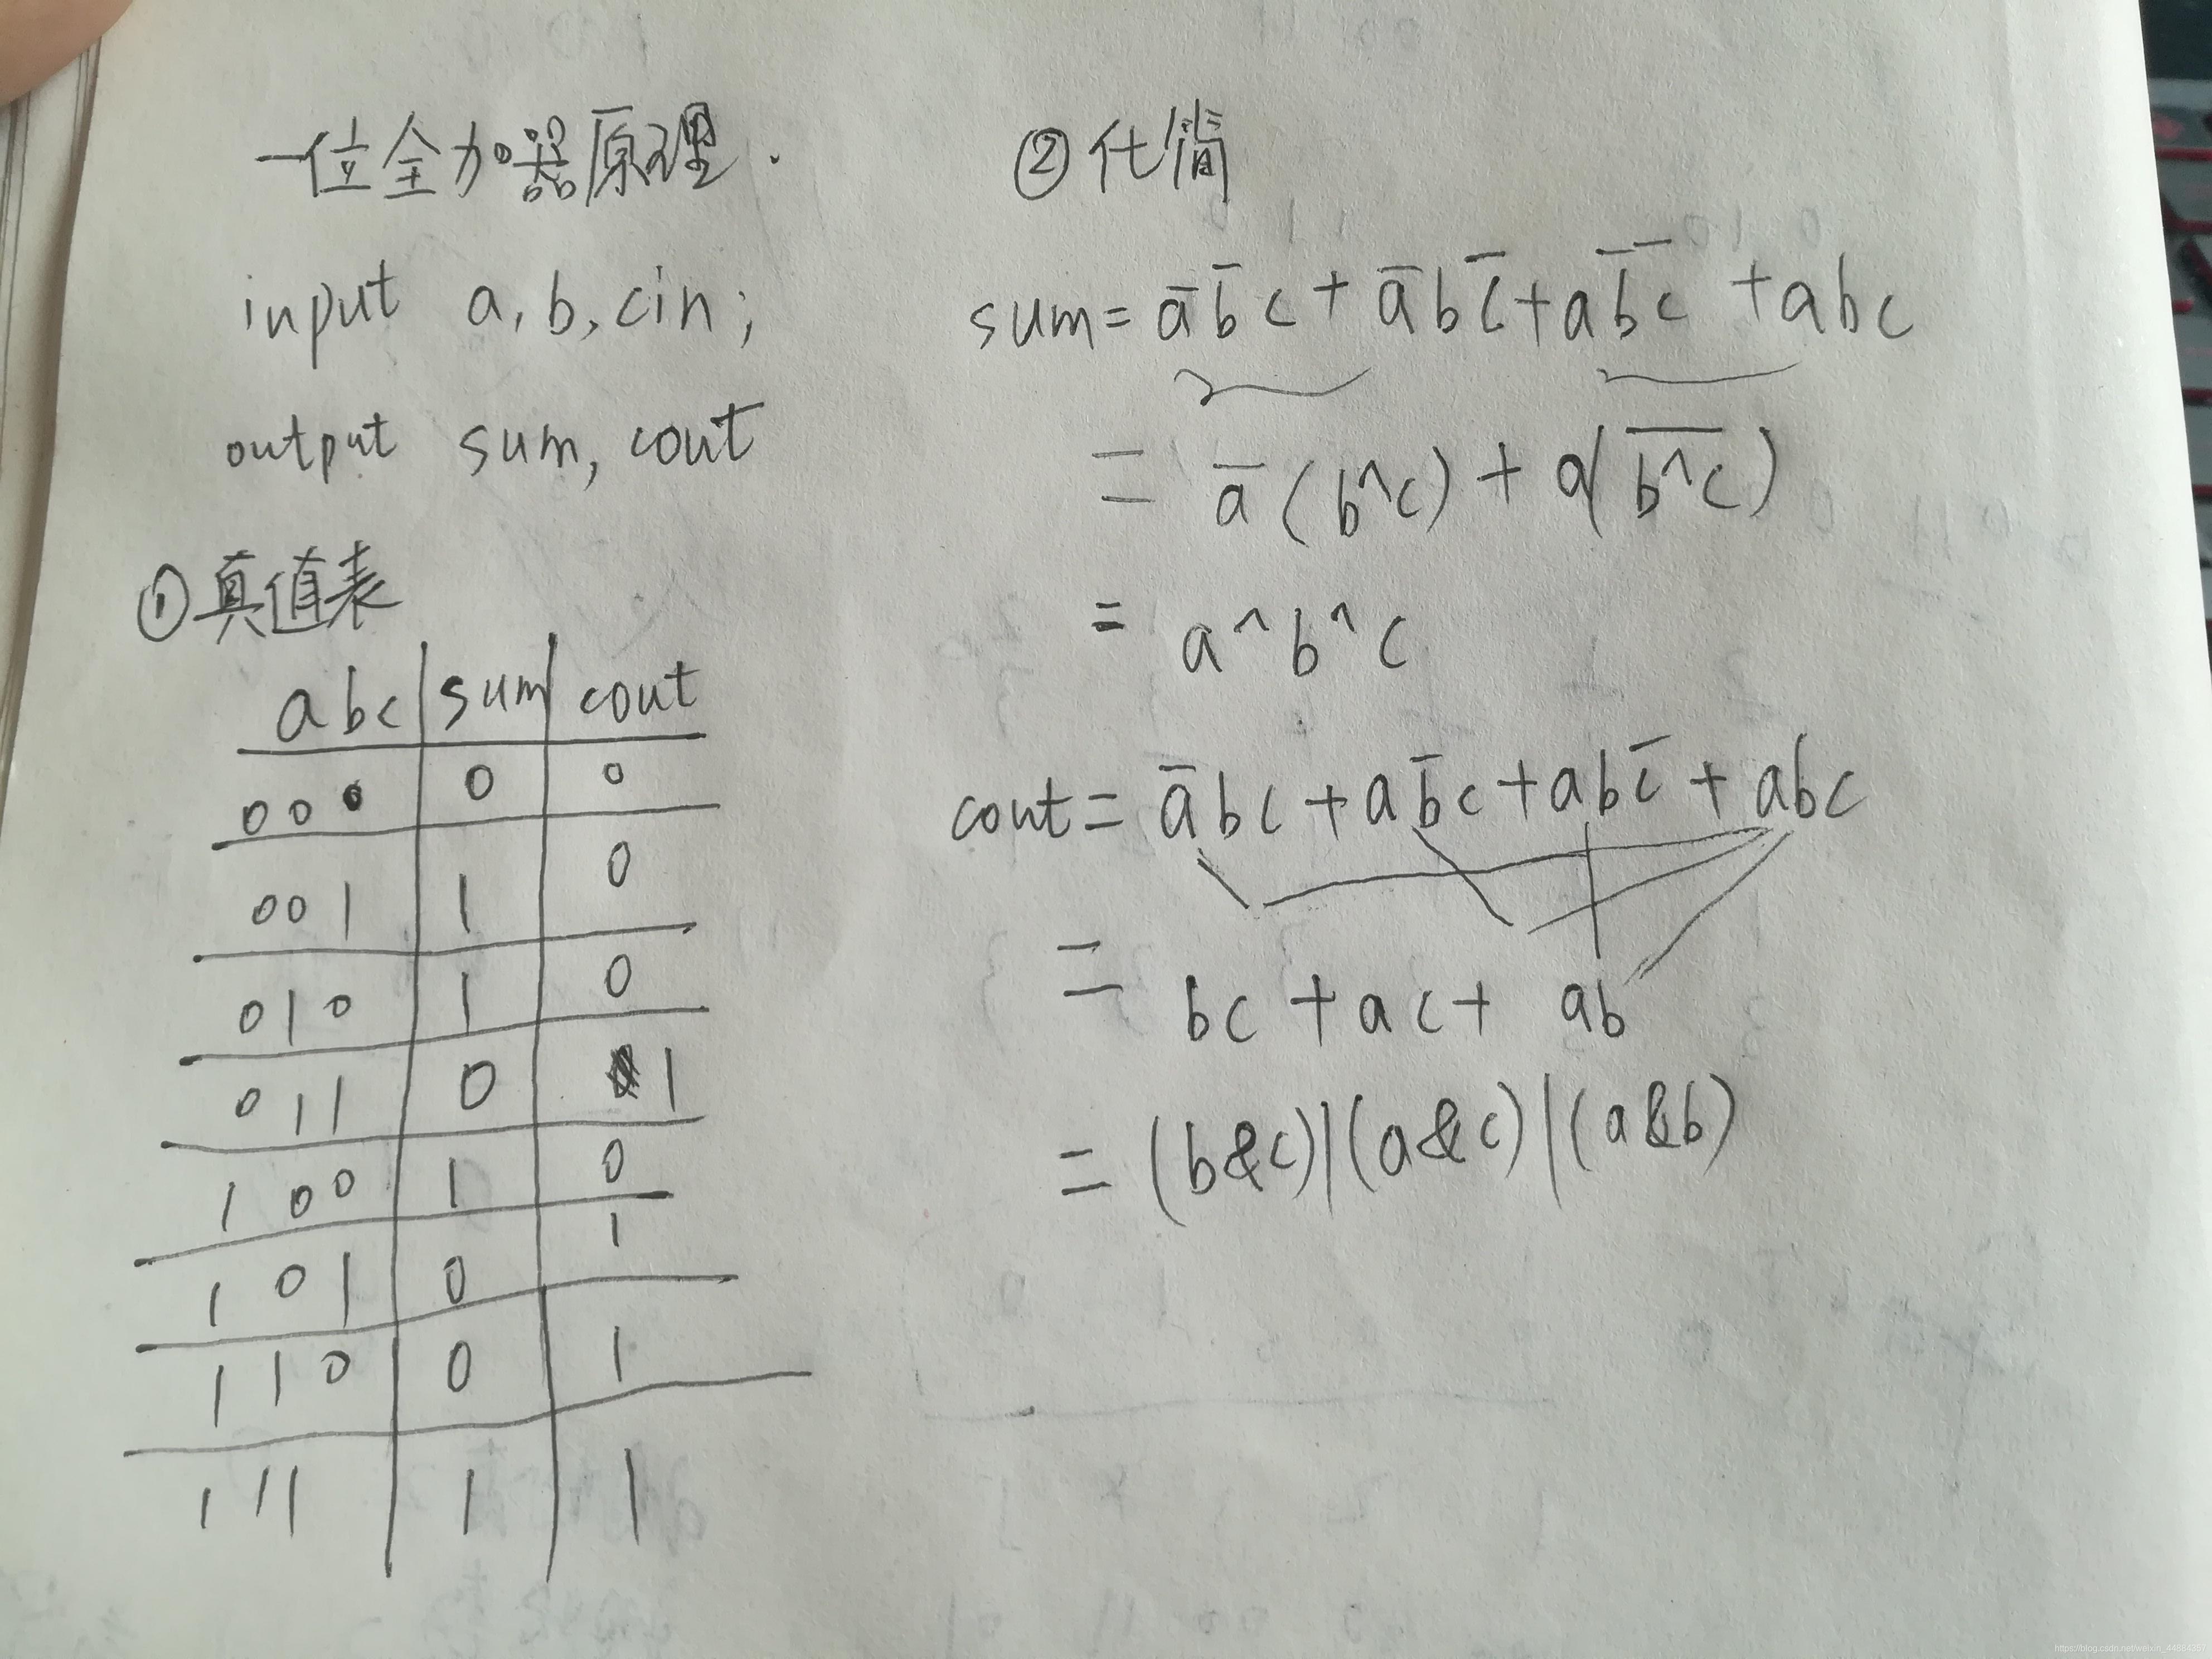 一位全加器原理.
input a, b, cin;
output sum, cout
①真值表
abc sum cout
000 0 0
001 1 0
010 1 0
011 0 1
100 1 0
101 0 1
110 0 1
111 1 1
②化简
sum = a̅b̅c + a̅bc̅ + ab̅c̅ + abc
= a̅(b^c) + a(b^c)̅
= a^b^c
cout = a̅bc + ab̅c + abc̅ + abc
= bc + ac + ab
= (b&c)|(a&c)|(a&b)